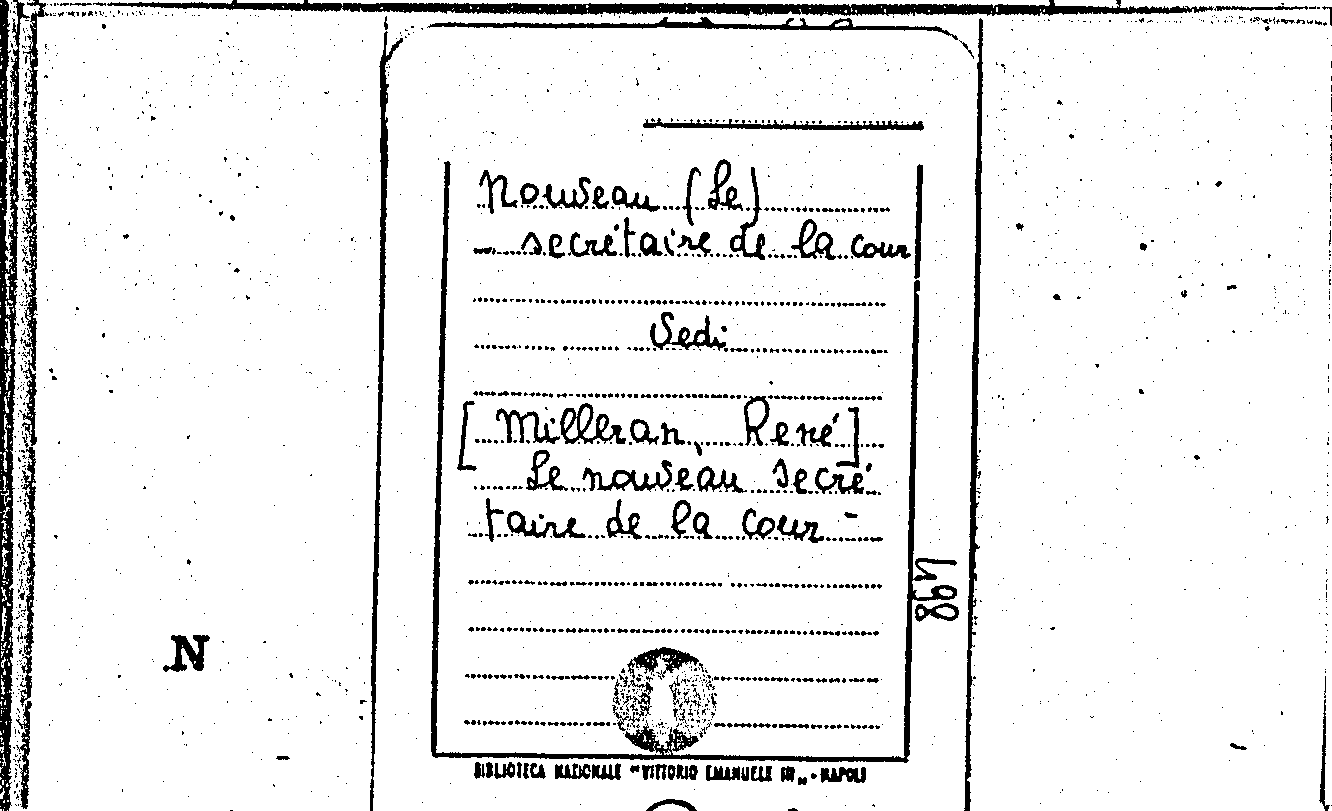 Nouveau (Le)
- secrétaire de la cour
Vedi
[Milleran, René]
Le nouveau secré
taire de la cour -
498
N
BIBLIOTECA NAZIONALE "VITTORIO EMANUELE III" - NAPOLI